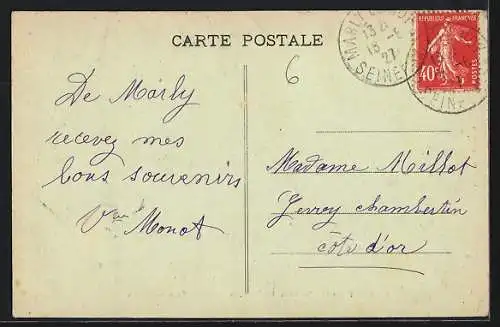 CARTE POSTALE
6
De Marly
recevez mes
bons souvenirs
Vve Monot
Madame Millot
Gevrey chambertin
côte d'or
RÉPUBLIQUE FRANÇAISE
40c
POSTES
MARLY
13
15 -9
27
SEINE